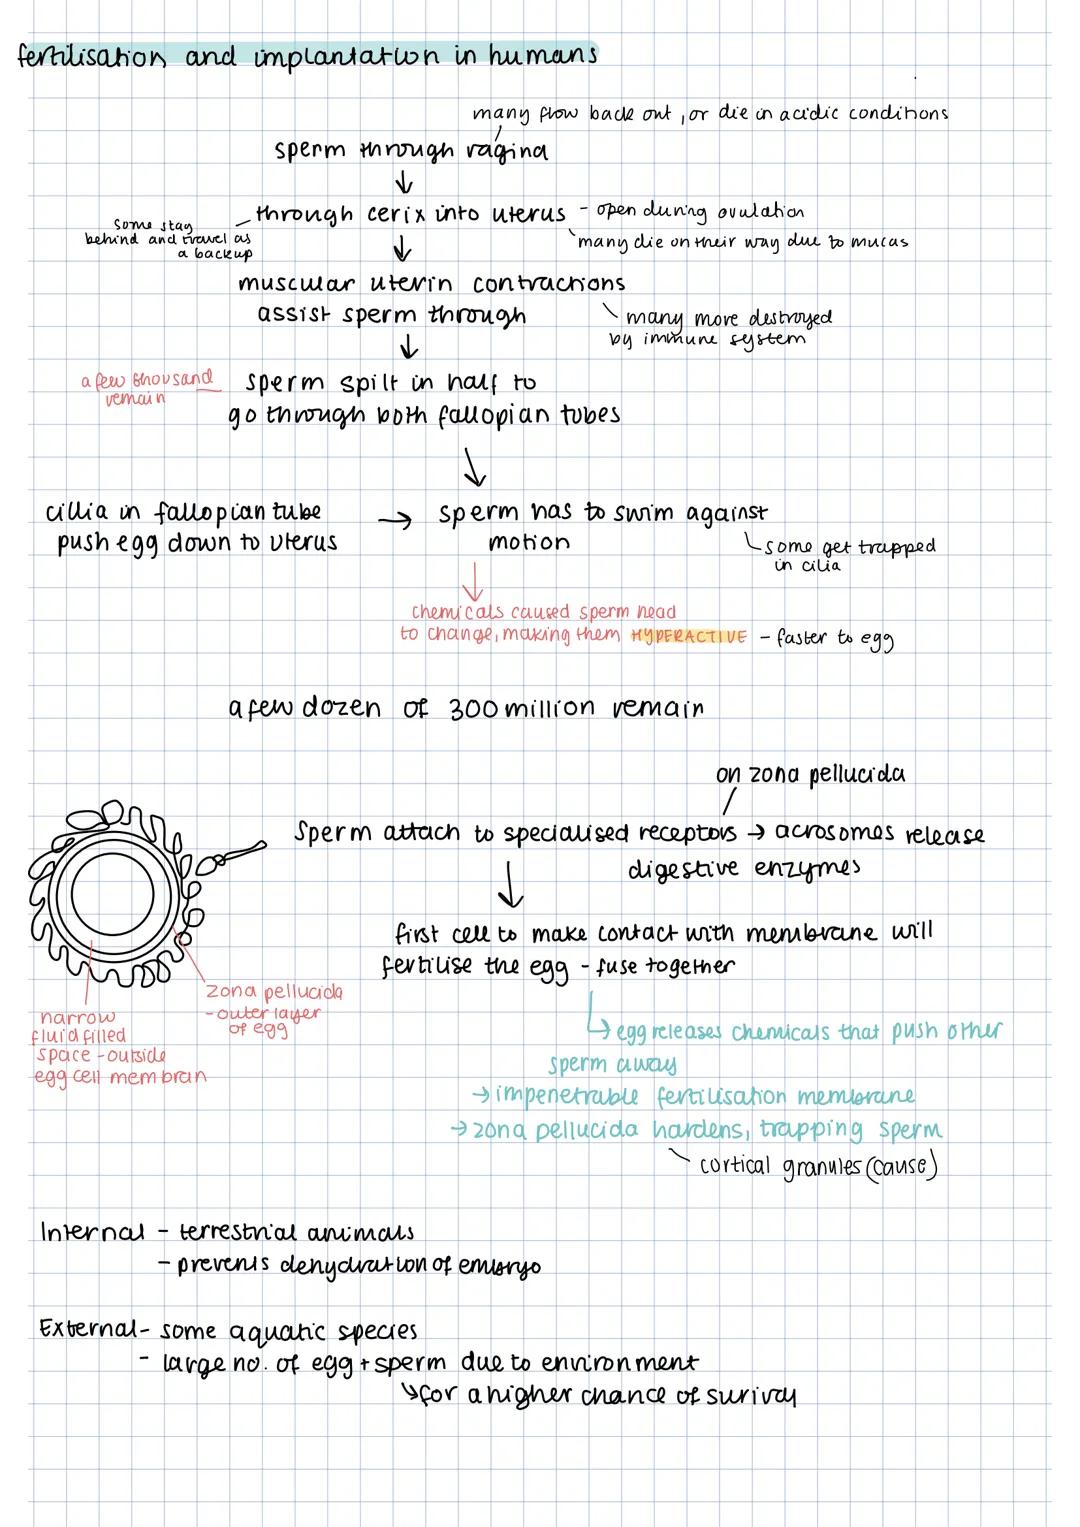 fertilisation and implantation in humans
many flow back out, or die in acidic conditions
sperm through vagina
through cerix into uterus - open during ovulation
some stay
behind and travel as
a backup
many die on their way due to mucas
muscular uterin contractions
assist sperm through
many more destroyed
by immune system
a few thousand
remain
sperm spilt in half to
go through both fallopian tubes
cillia in fallopian tube
push egg down to uterus
→ sperm has to swim against
motion
some get trapped
in cilia
chemicals caused sperm head
to change, making them HYPERACTIVE - faster to egg
a few dozen of 300 million remain
on zona pellucida
Sperm attach to specialised receptors → acrosomes release
digestive enzymes
first cell to make contact with membrane will
fertilise the egg - fuse together
zona pellucida
- outer layer
of egg
narrow
fluid filled
space - outside
egg cell membran
egg releases chemicals that push other
sperm away
→ impenetrable fertilisation membrane
→ zona pellucida hardens, trapping sperm
cortical granules (cause)
Internal - terrestrial animals
- prevents dehydration of embryo
External - some aquatic species
- large no. of egg + sperm due to environment
for a higher chance of surival